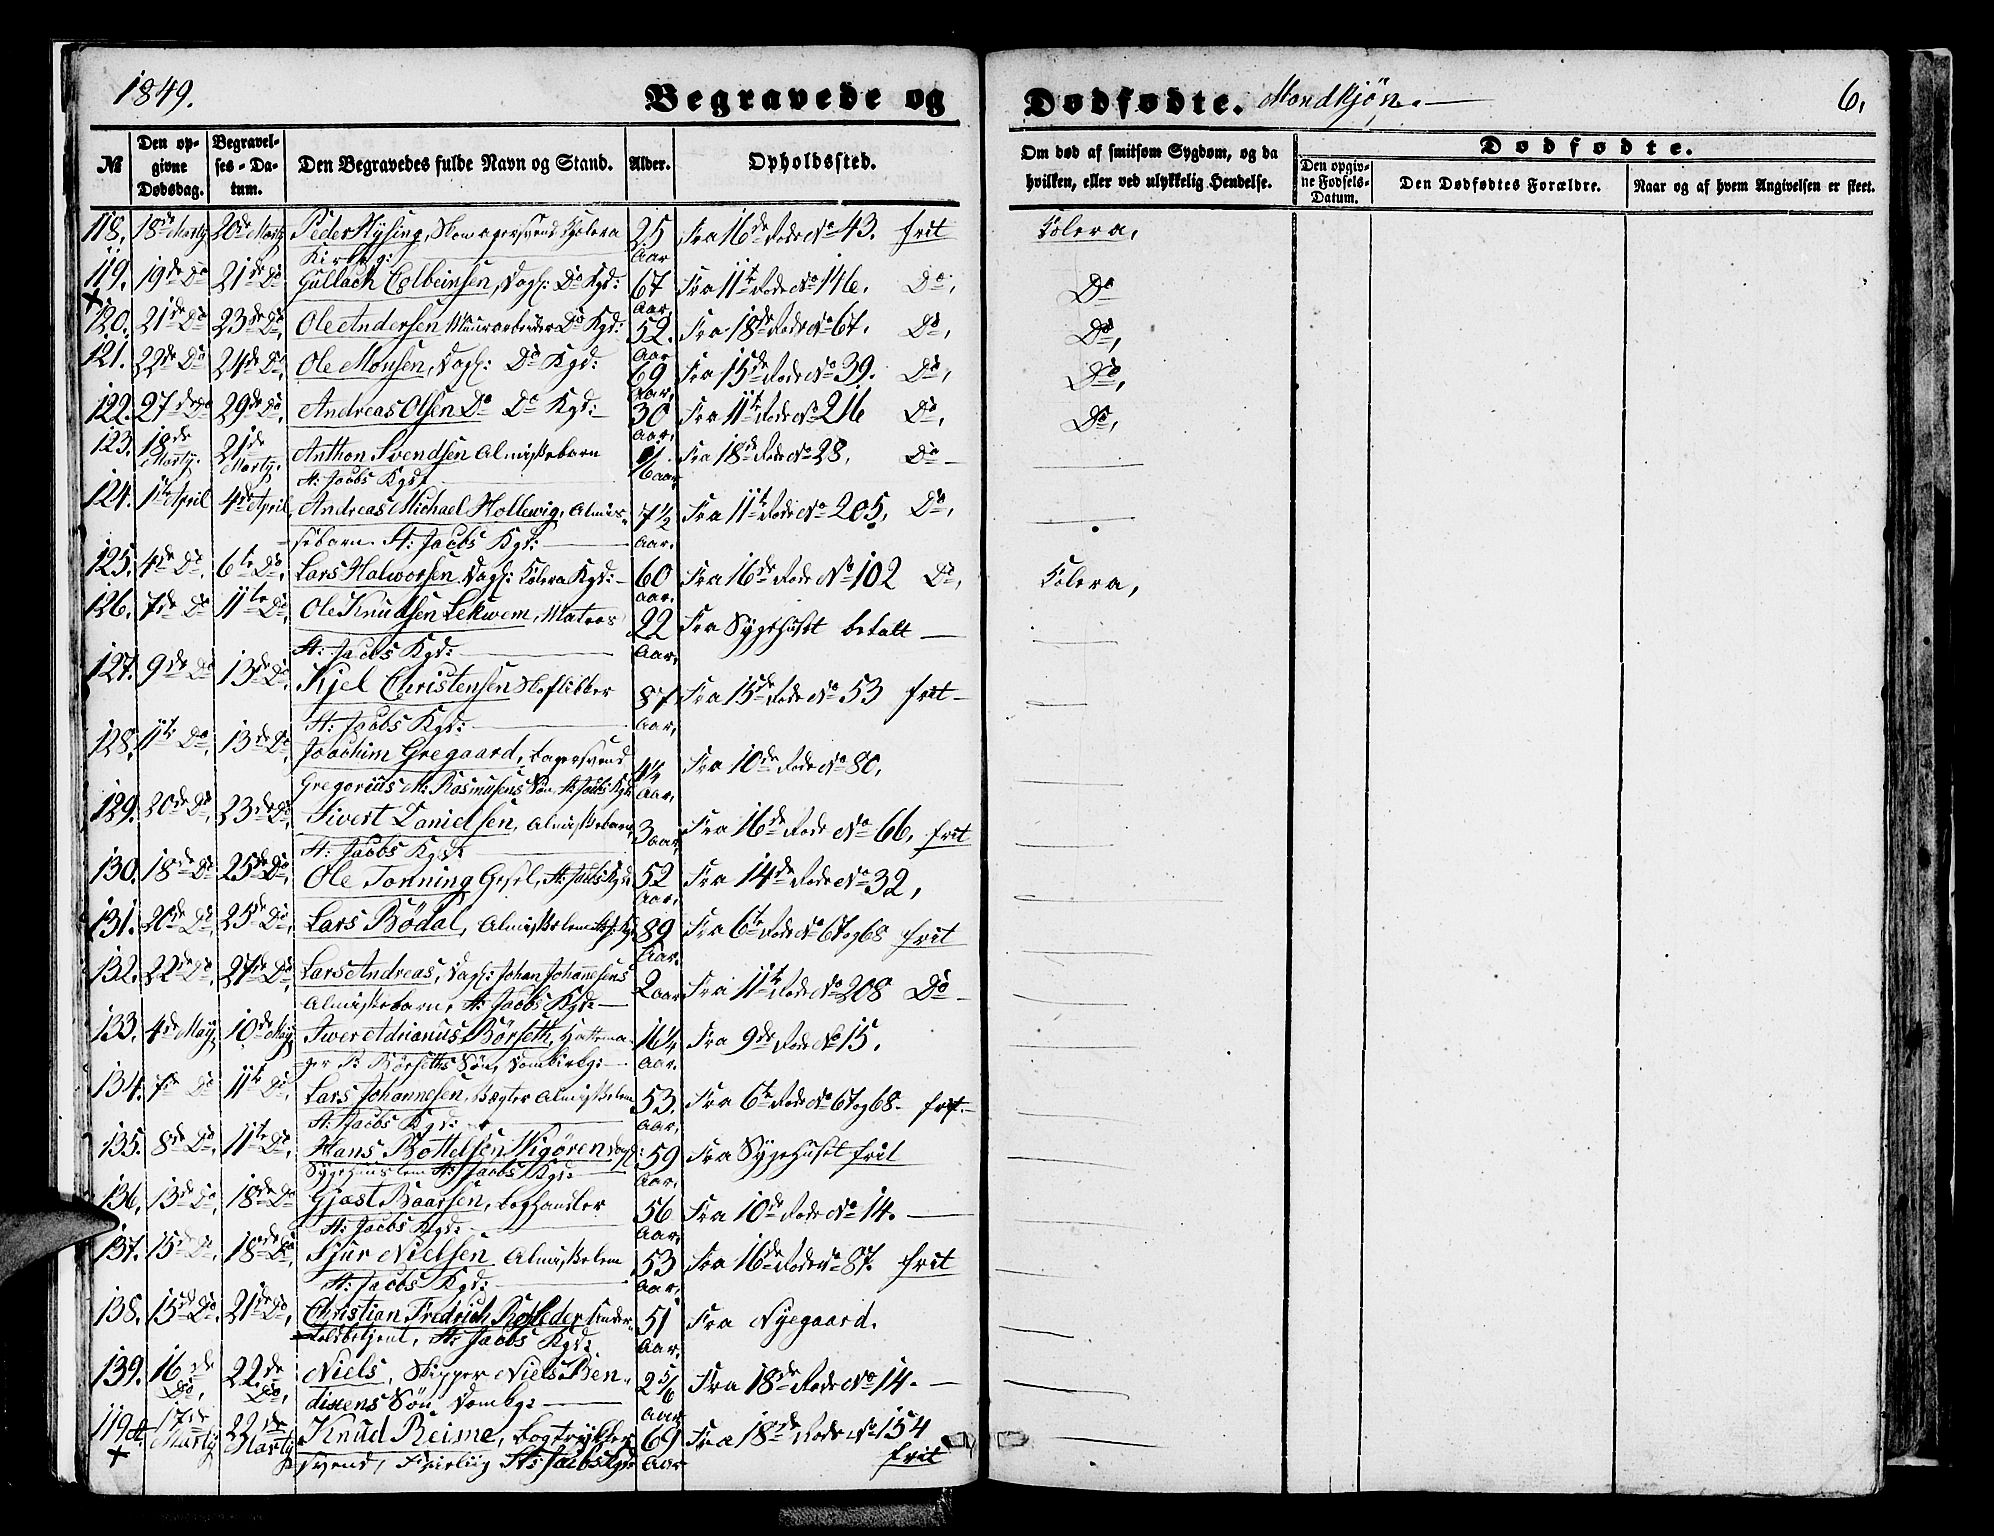 1849.
Begravede og
Dødfødte. Mandkjøn.
6.
№
Den opgivne Dødsdag.
Begravelses-Datum.
Den Begravedes fulde Navn og Stand.
Alder.
Opholdssted.
Om død af smitsom Sygdom, og da hvilken, eller ved ulykkelig Hendelse.
Dødfødte.
Den opgivne Fødsels-Datum.
Den Dødfødtes Forældre.
Naar og af hvem Angivelsen er skeet.
118. 18de Marty 20de Marty Peder Kysing, Kolera 25 Fra 16de Rode No 43. frit Kolera,
Kirkeg: Aar
119. 19de Do 21de Do Gullach Colbeinsen, Dagl: Do Kgd: 67 Fra 11te Rode No 146. Do, Do
Aar,
120. 21de Do 23de Do, Ole Andersen Muurarbeider Do Kgd: 52. Fra 18de Rode No 67. Do, Do,
Aar
121. 22de Do 24de Do Ole Monsen, Dagl: Do Kgd: 69 Fra 15de Rode No 39. Do, Do,
Aar,
122. 27de Do 29de Do, Andreas Olsen Do Do Kgd: 30 Fra 11te Rode No 216 Do, Do,
Aar,
123. 18de Marty. 21de Marty. Anthon Svendsen Almissebarn Fra 18de Rode No 28. Do
St: Jacobs Kgd:
124. 1te April 4de April, Andreas Michael Hollewig, Almis- 7½ Fra 11te Rode No 205, Do,
sebarn. St: Jacobs Kgd: Aar.
125. 4de Do, 6te Do, Lars Halworsen Dagl: Kolera Kgd: 60 Fra 16de Rode No 102 Do, Kolera,
Aar.
126. 7de Do 11te Do, Ole Knudsen Lekwem, Matros 22 Fra Sygehuset betalt
St: Jacobs Kgd: Aar,
127. 9de Do 13de Do, Kjel Christensen 87 Fra 15de Rode No 53 frit
St: Jacobs Kgd: Aar,
128. 11te Do, 13de Do, Joachim Gregaard, Bagersvend Fra 10de Rode No 80,
Gregorius M: Rasmusens Søn St: Jacobs Kgd: Aar,
129. 20de Do, 23de Do, Sivert Danielsen, Almissebarn, 3 aar, Fra 16de Rode No 66, frit
St: Jacobs Kgd:
130. 18de Do 25de Do, Ole Tonning Gesel, St: Jacobs Kgd: 52 Fra 14de Rode No 32,
Aar.
131. 20de Do, 25de Do, Lars Bödal, Almisselem 89 Fra 6te Rode No 67 og 68 frit
Aar.
132. 22de Do, 27de Do, Lars Andreas, Dagl: Johan Johannesens 2 aar Fra 11te Rode No 208 Do
Almissebarn, St: Jacobs Kgd:
133. 4de May, 10de May Iwer Adrianus Börseth, Hattema- 16¼ Fra 9de Rode No 15.
ger P. Börseths Søn, Domkirkeg: Aar.
134. 7de Do 11te Do, Lars Johannesen, Bægter Almisselem 53. Fra 6te Rode No 67 og 68. frit.
St: Jacobs Kgd: Aar.
135. 8de Do, 11te Do, Hans Bottelsen Wigören Dagl: 59 Fra Sygehuset frit
Sygehuuslem St: Jacobs Kgd: Aar.
136, 13de Do, 18de Do Gjæst Baarsen, Boghandler 56 Fra 10de Rode No 14.
St: Jacobs Kgd: Aar.
137. 15de Do, 18de Do, Sjur Nielsen Almisselem 53 Fra 16de Rode No 87. frit
St: Jacobs Kgd: Aar,
138. 15de Do, 21de Do, Christian Fredrich Under- 51 Fra Nyegaard.
toldbetjent, St: Jacobs Kgd: Aar.
139. 16de Do, 22de Do, Niels, Skipper Niels Ben- 2 5/6 Fra 18de Rode No 14.
dixens Søn, Domkg: Aar
119 a. 17de Marty 22de Marty Knud Reime, Bogtrykker 69 Fra 18de Rode No 154
svend, St: Jacobs Kgd: Aar frit